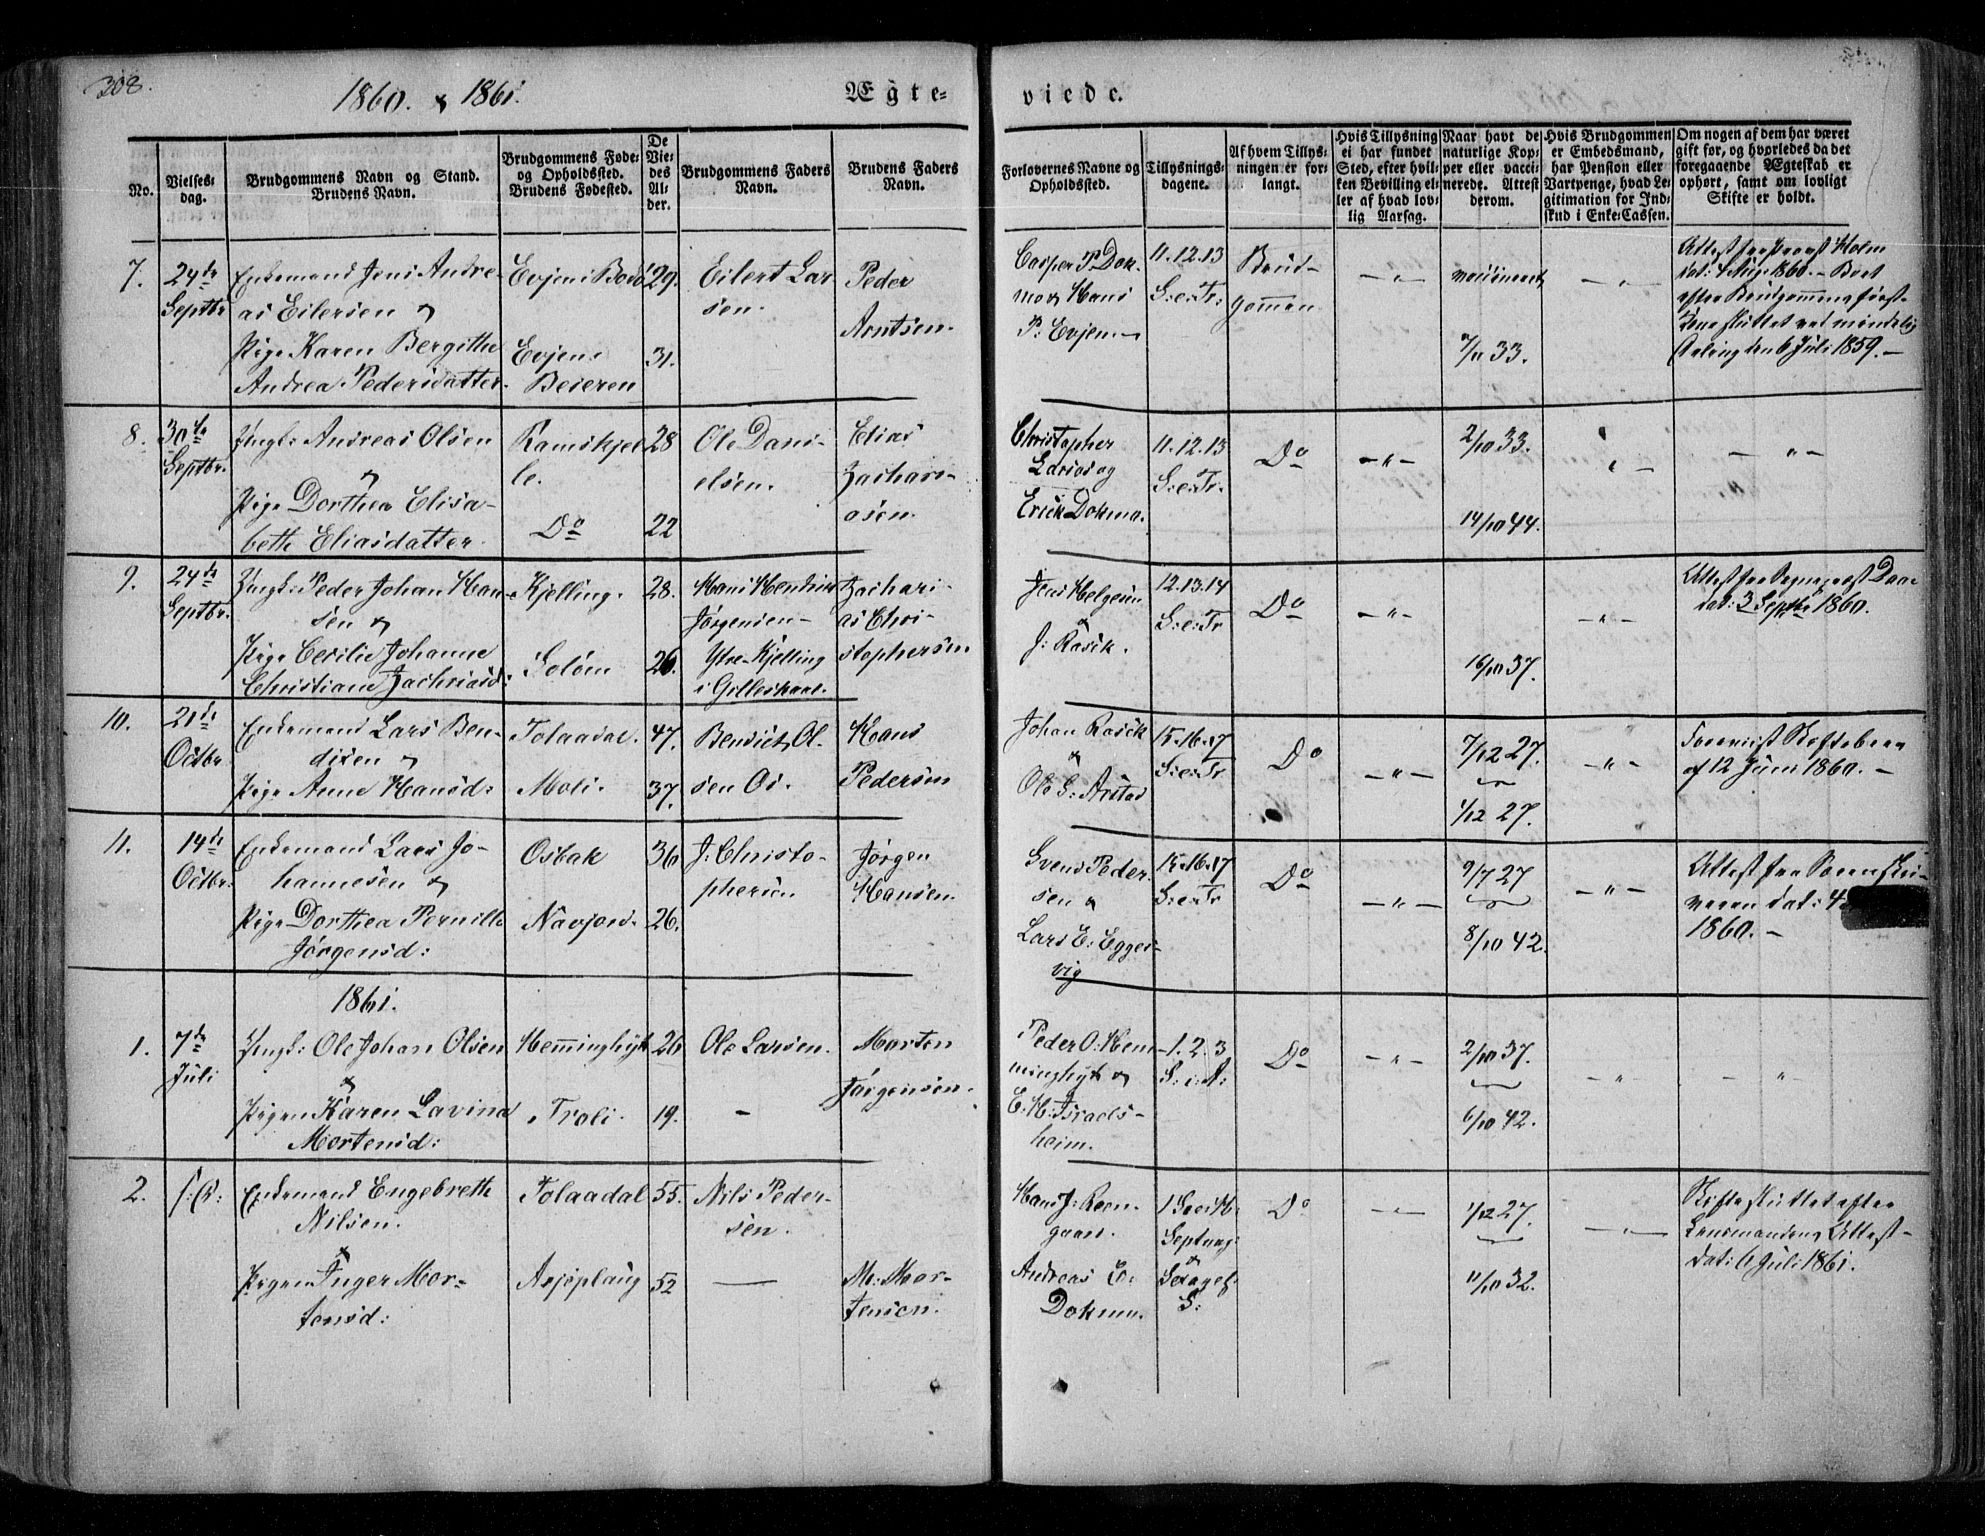 308.
1860. & 1861.
Ægte-
viede.
No.
Vielses-
dag.
Brudgommens Navn og Stand.
Brudens Navn.
Brudgommens Føde-
og Opholdssted.
Brudens Fødested.
De
Vie-
des
Al-
der.
Brudgommens Faders
Navn.
Brudens Faders
Navn.
Forlovernes Navne og
Opholdssted.
Tillysnings-
dagene.
Af hvem Tillys-
ningen er for-
langt.
Hvis Tillysning
ei har fundet
Sted, efter hvil-
ken Bevilling el-
ler af hvad lov-
lig Aarsag.
Naar havt de
naturlige Kop-
per eller vacci-
nerede. Attest
derom.
Hvis Brudgommen
er Embedsmand,
har Pension eller
Vartpenge, hvad Le-
gitimation for Ind-
skud i Enke-Cassen.
Om nogen af dem har været
gift før, og hvorledes da det
foregaaende Ægteskab er
ophørt, samt om lovligt
Skifte er holdt.
7.
24de
Septbr
Enkemand Jens Andre-
as Eilersen &
Pige Karen Bergithe
Andrea Pedersdatter.
Evjen i Bodø
Evjen i
Beieren
29.
31.
Eilert Lar
sen.
Peder
Arntsen.
Casper P. Dok-
mo & Hans
P. Evjen
11. 12. 13
S: e: Tr:
Brud-
gomen
- " -
vaccineret
7/11 33.
- " -
Attest fra Provst Holm
dat: 4 Aug. 1860. - Boet
efter Brudgommens første
Kone sluttet ved mindelig
den 6 Juli 1859. -
8.
30te
Septbr.
Ungk: Andreas Olsen
&
Pige Dorthea Elisa-
beth Eliasdatter
Ramskjel
le.
Do
28
22
Ole Dani-
elsen.
Elias
Zachari-
asen.
Christopher
Edvis og
Erick Dokmo.
11. 12. 13
S: e: Tr.
Do
- " -
2/10 33.
14/10 44.
" -
- " -
9.
24de
Septbr.
Ungk: Peder Johan Han-
sen &
Pige Cecilie Johanne
Christiane Zachriasd:
Kjelling.
Soløen
28.
26.
Hans Hendrik
Jørgensen -
Ytre-Kjelling
i Gilleskaal.
Zachari-
as Chri-
stophersen
Jens Helgesen
&
J: Røsik.
12. 13. 14
S: e: Tr
Do
- " -
16/10 37.
- " -
Attest fra Sogneprest Daae
dat: 3 Septbr 1860.
10.
21de
Octbr
Enkemand Lars Ben-
dixen &
Pige Anne Hansd:
Tolaadal.
Moli.
47.
37.
Bendict Ol-
sen Os.
Hans
Pedersen
Johan Røsik
&
Ole S: Arstad
15. 16. 17
S: e: Tr
Do
- " -
7/12 27.
1/12 27.
- " -
Foreviist Skiftebrev
af 12 Juni 1860. -
11.
14de
Octbr.
Enkemand Lars Jo-
hannesen &
Pige Dorthea Pernilla
Jørgensd:
Osbak
Navjord.
36
26.
J: Christo-
phersen.
Jørgen
Hansen.
Svend Peder-
sen &
Lars E: Egges-
vig
15. 16. 17
S: e: Tr
Do
- " -
9/7 27
8/10 42.
- " -
Attest fra Sorenskri-
veren dat: 4
1860. -
1861.
1.
7de
Juli
Ungk: Ole Johan Olsen
&
Pigen Karen Lavina
Mortensd:
Hemminghyt
Troli.
26
19.
Ole Larsen.
-
Morten
Jørgensen.
Peder O: Hem-
minghyt &
E: H: Israels-
heim.
1. 2. 3
S: i: A:
Do
- " -
2/10 37.
6/10 42.
- " -
- " -
2.
S: D:
Enkemand Engebreth
Nilsen.
&
Pigen Inger Mor-
tensd:
Tolaadal
Arjeplaug
55.
52
Nils Peder-
sen.
-
M: Mor-
tensen.
Hans J: Ren-
gaard.
Andreas E:
Dokmo.
Septuag:
&
Sexages:
S:
Do
- " -
1/12 27.
11/10 32.
- " -
Skifte sluttet efter
Lensmandens Attest
dat: 6 Juli 1861.